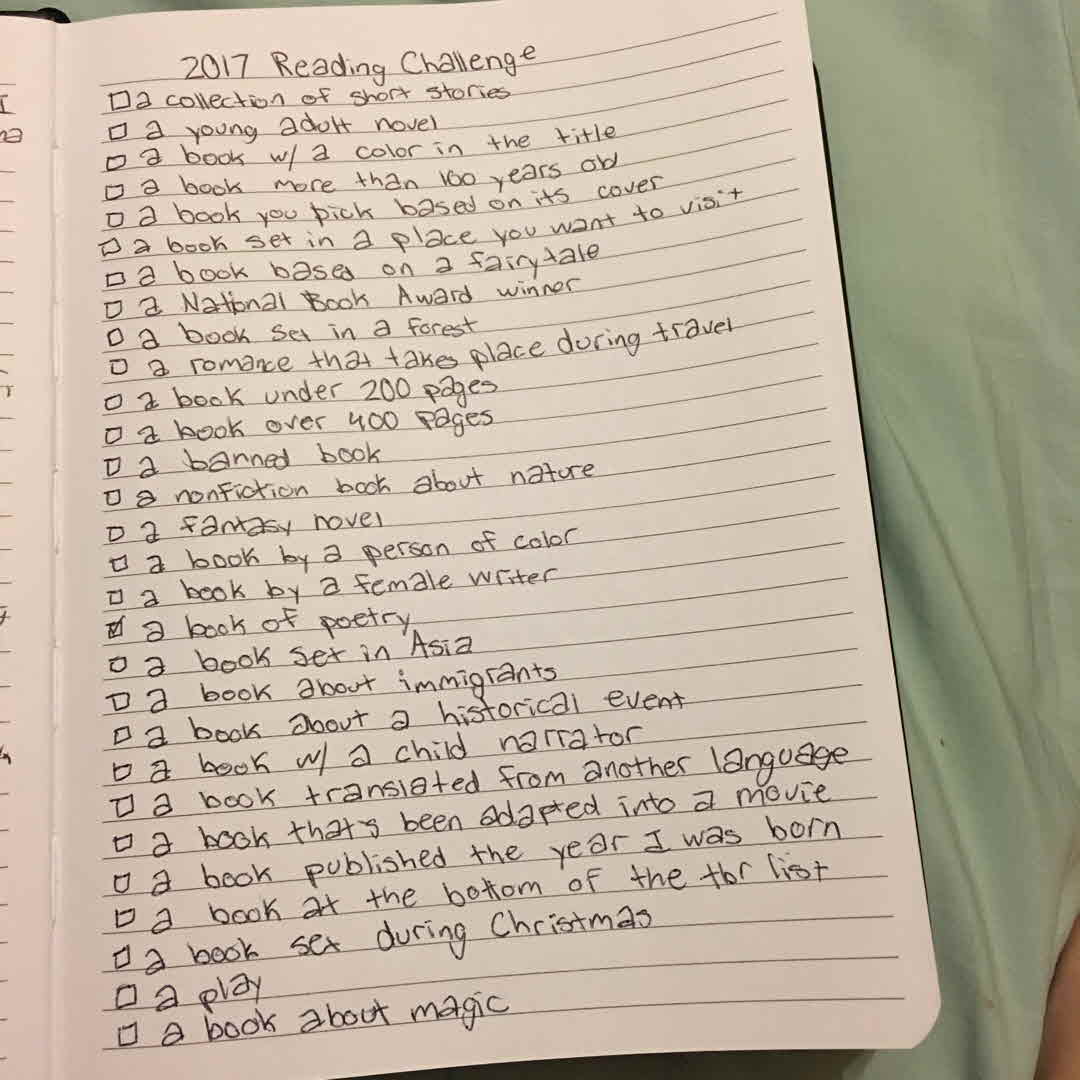 2017 Reading Challenge
a collection of short stories
a young adult novel
a book w/ a color in the title
a book more than 100 years old
a book you pick based on its cover
a book set in a place you want to visit
a book based on a fairytale
a National Book Award winner
a book set in a forest
a romance that takes place during travel
a book under 200 pages
a book over 400 pages
a banned book
a nonfiction book about nature
a fantasy novel
a book by a person of color
a book by a female writer
a book of poetry
a book set in Asia
a book about immigrants
a book about a historical event
a book w/ a child narrator
a book translated from another language
a book that's been adapted into a movie
a book published the year I was born
a book at the bottom of the tbr list
a book set during Christmas
a play
a book about magic